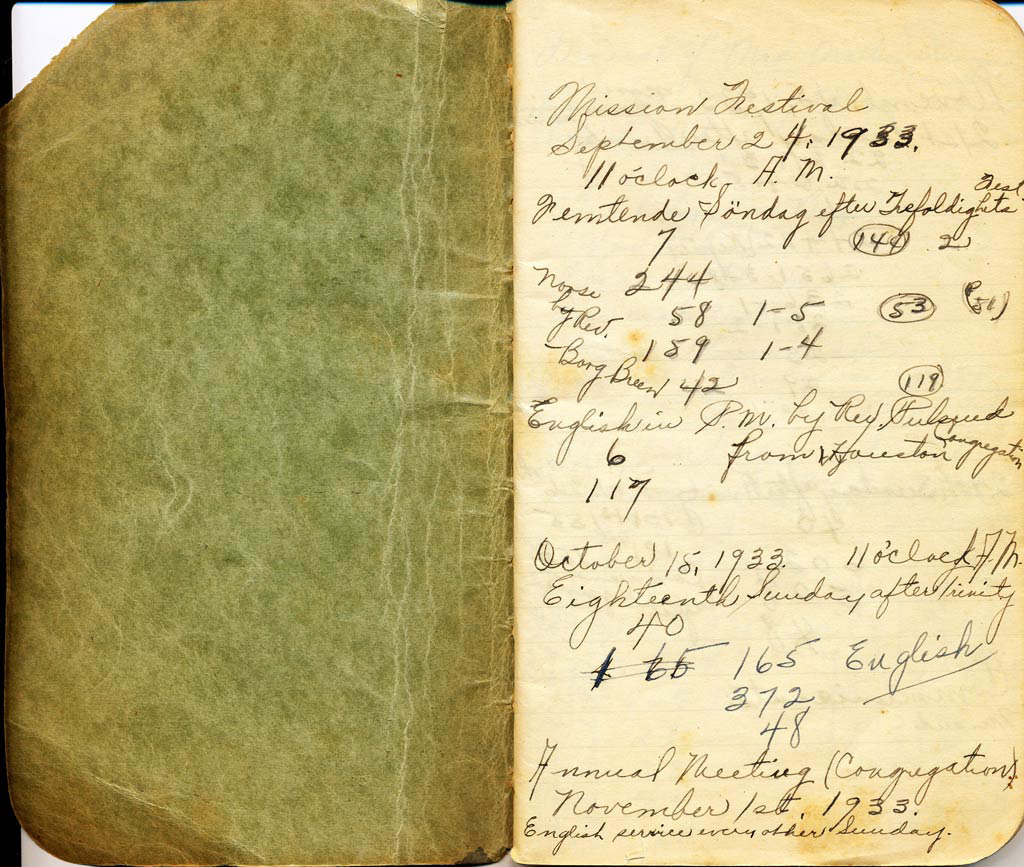 Mission Festival
September 24, 1933.
11 o'clock A. M.
Femtende Söndag efter Trefoldigheds Fest
7 (144) 2
Norse 244
by Rev. 58 1-5 (53) (P 51)
Borg Breen 159 1-4
42 (119)
English in P.M. by Rev. 
6 from Houston Congregation
117
October 15, 1933. 11 o'clock A.M.
Eighteenth Sunday after Trinity
40
1 65 165 English
372
48
Annual Meeting (Congregation)
November 1st, 1933.
English service every other Sunday.